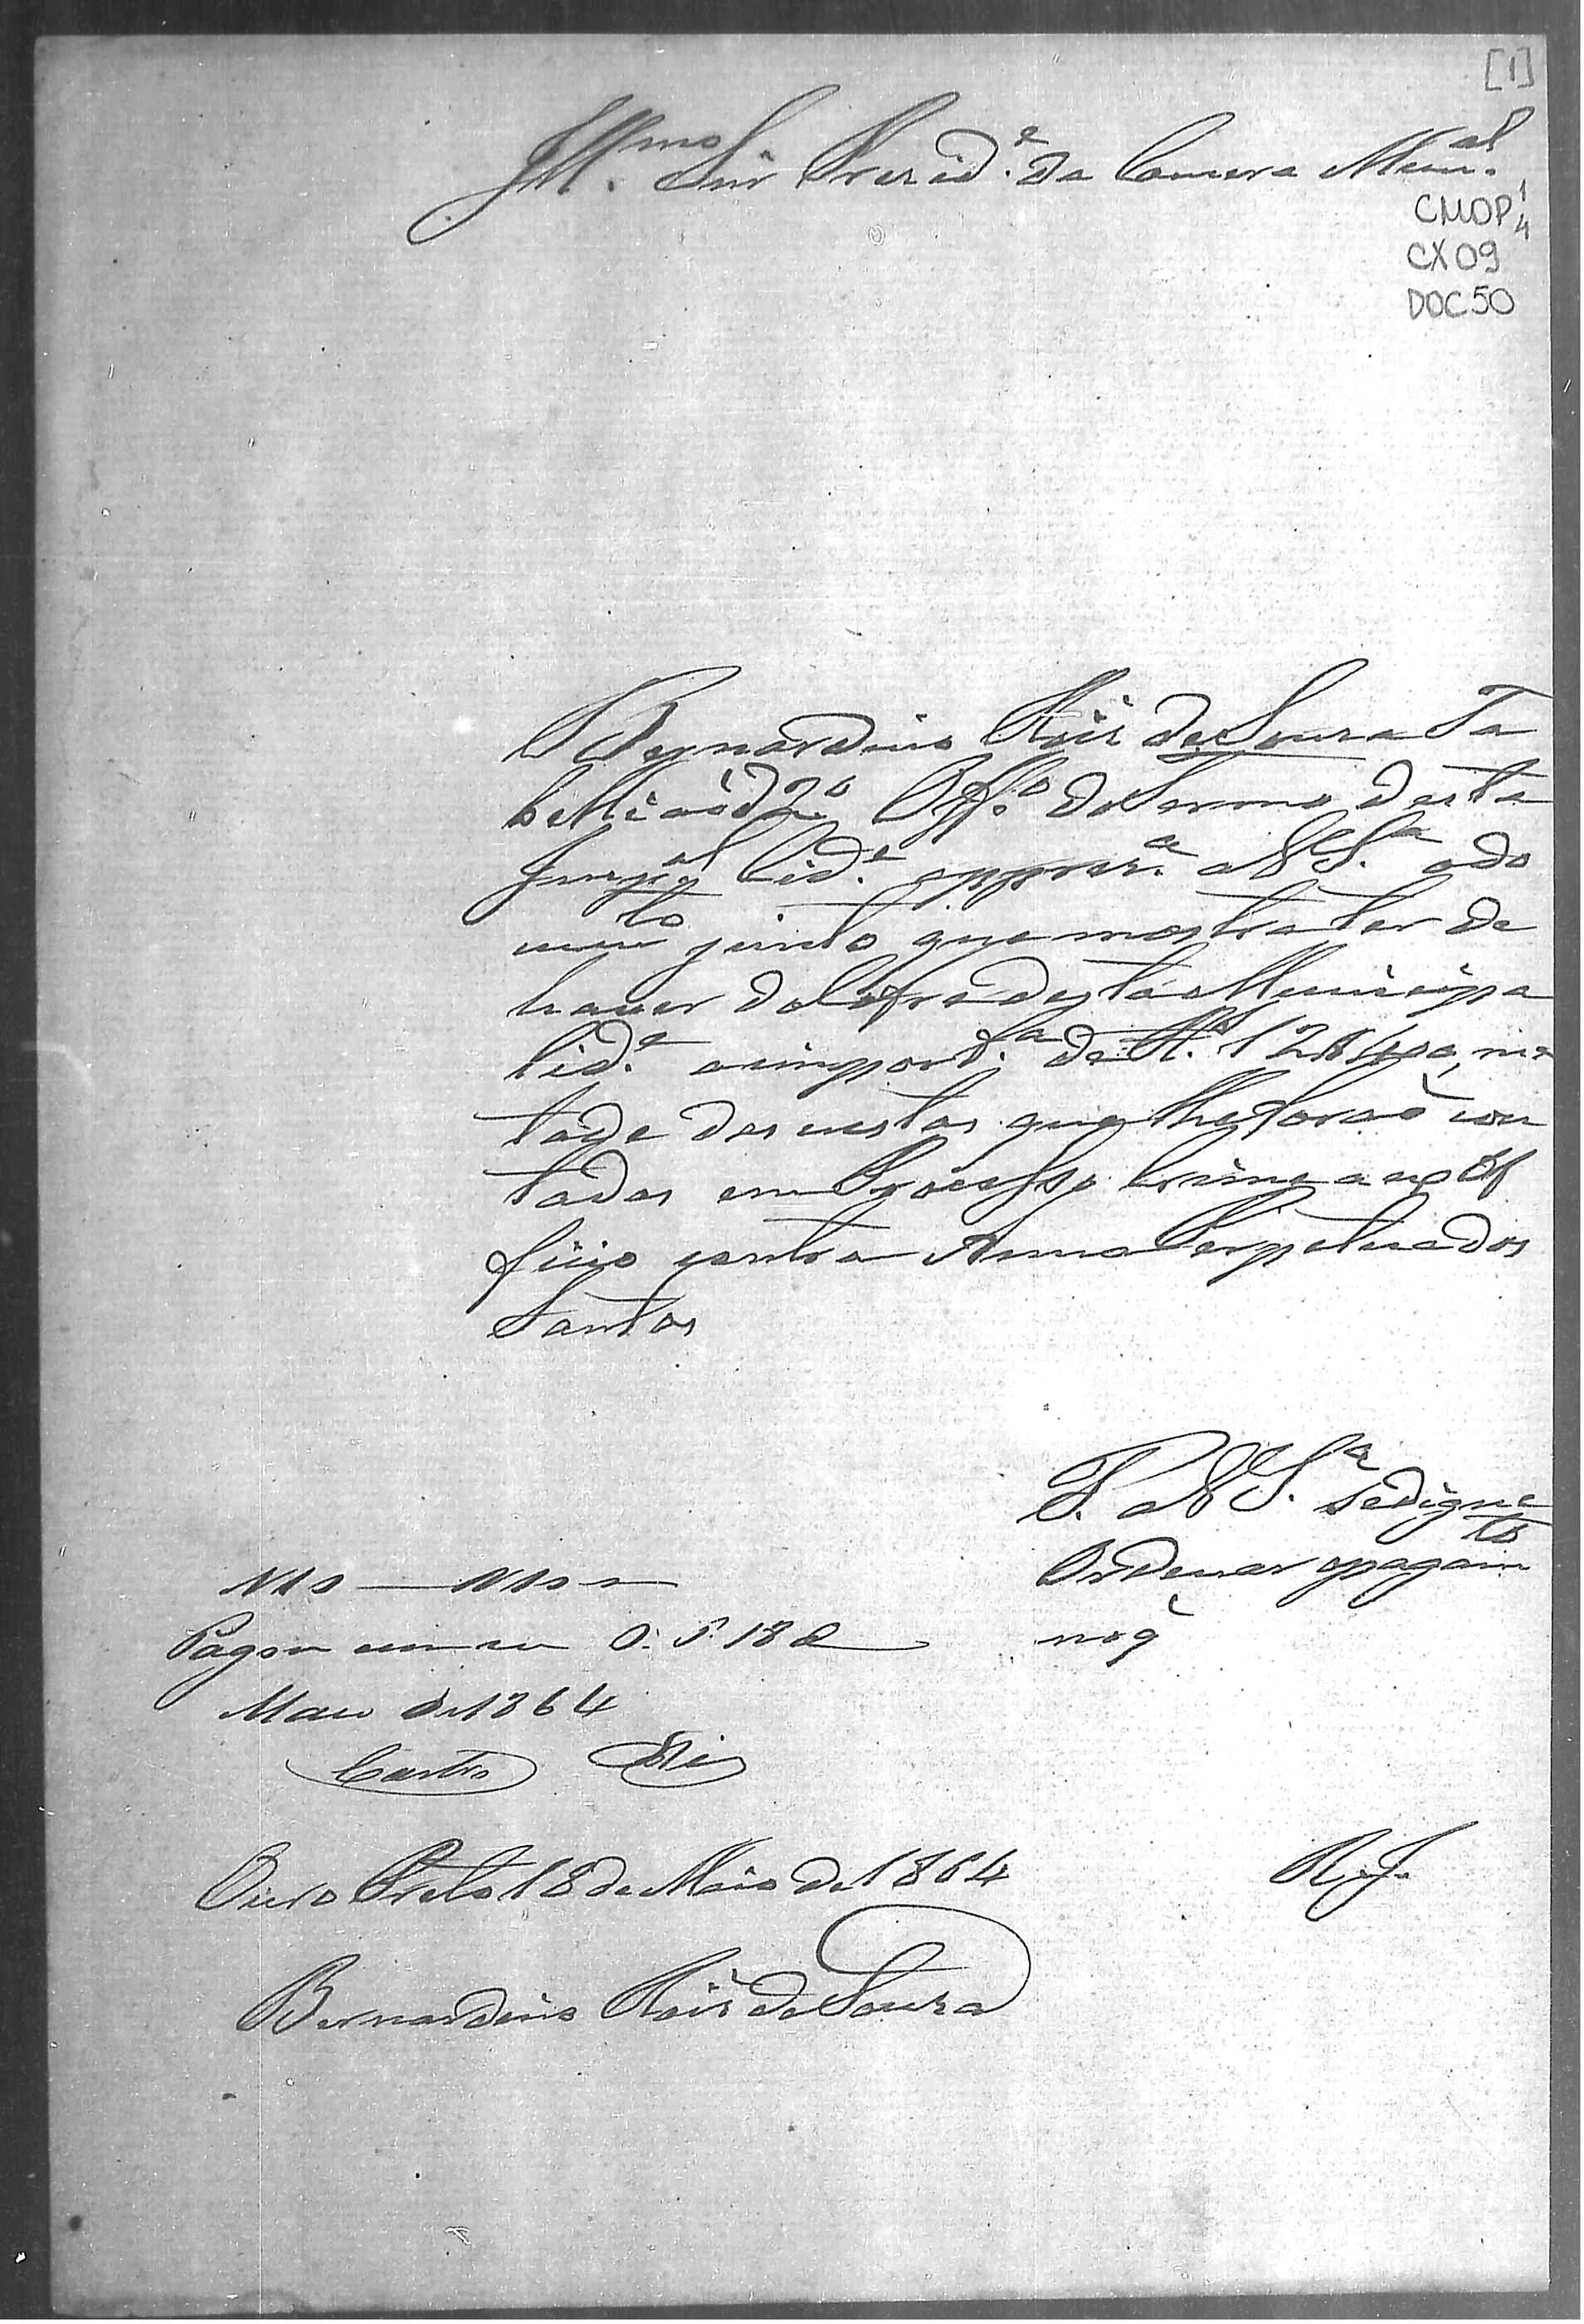 [1]
Illmo Snr Prezid.e da Camera Mun.al
CMOP 1/4
CX 09
DOC 50
Bernardino Roiz de Souza Ta
bellião do 2.o Off.o do Termo desta
Imp.al Cid.e apprez.a a V S.a o do
cum.to junto que mostra ter de
haver do Cofre desta Municipa
lid.e a import.a de R.s 12$400, me
tade das custas que lhe forão con
tadas em Processo Crime a ex Of
ficio contra Anna Perpetua dos
Santos
P. a V S.a se digne
Ordenar o pagam.to
no q
Pagou em
O. P. 18 de
Maio de 1864
Castro
R. J.
Ouro Preto 18 de Maio de 1864
Bernardino Roiz de Souza